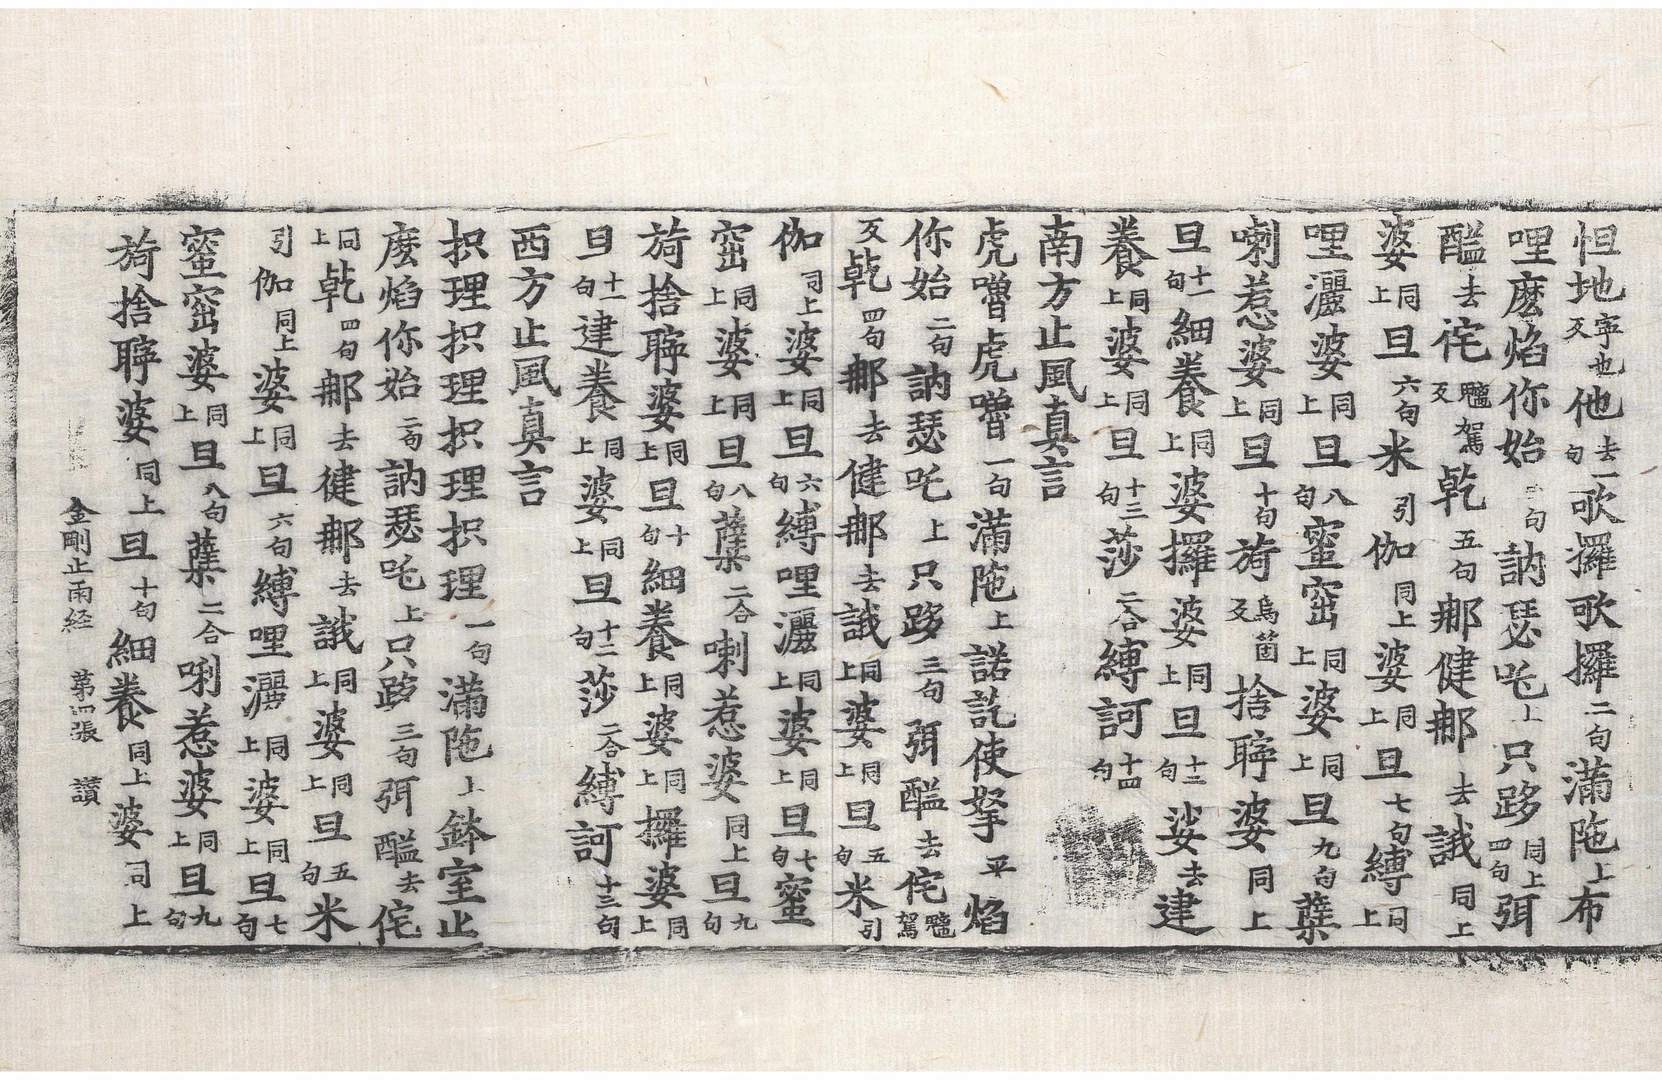 怛地寧也反他去一句歌攞歌攞二句滿陁上布
哩麽焰你始三句訥瑟吒上只跢同上四句弭
䤈去侘魑駕反乾五句那健那去誐同上
婆同上旦六句米引伽同上婆同上旦七句縛同上
哩灑婆同上旦八句蜜窋同上婆同上旦九句蘖
喇惹婆同上旦十句旖烏箇反捨聹婆同上
旦十一句細養同上婆攞婆同上旦十二句娑去建
養同上婆同上旦十三句莎二合縛訶十四句
南方止風真言
虎嚕虎嚕一句滿陁上諾訖使拏平焰
你始二句訥瑟吒上只跢三句弭䤈去侘魑駕
反乾四句那去健那去誐同上婆同上旦五句米引
伽同上婆同上旦六句縛哩灑同上婆同上旦七句蜜
窋同上婆同上旦八句蘖二合喇惹婆同上旦九句
旖捨聹婆同上旦十句細養同上婆同上攞婆同上
旦十一句建養同上婆同上旦十二句莎二合縛訶十三句
西方止風真言
抧理抧理抧理抧理一句滿陁上鉢室止
麽焰你始二句訥瑟吒上只跢三句弭䤈去侘
同上乾四句那去健那去誐同上婆同上旦五句米
引伽同上婆同上旦六句縛哩灑同上婆同上旦七句
蜜窋婆同上旦八句蘖二合唎惹婆同上旦九句
旖捨聹婆同上旦十句細養同上婆同上
金剛止雨経 第四張 讃